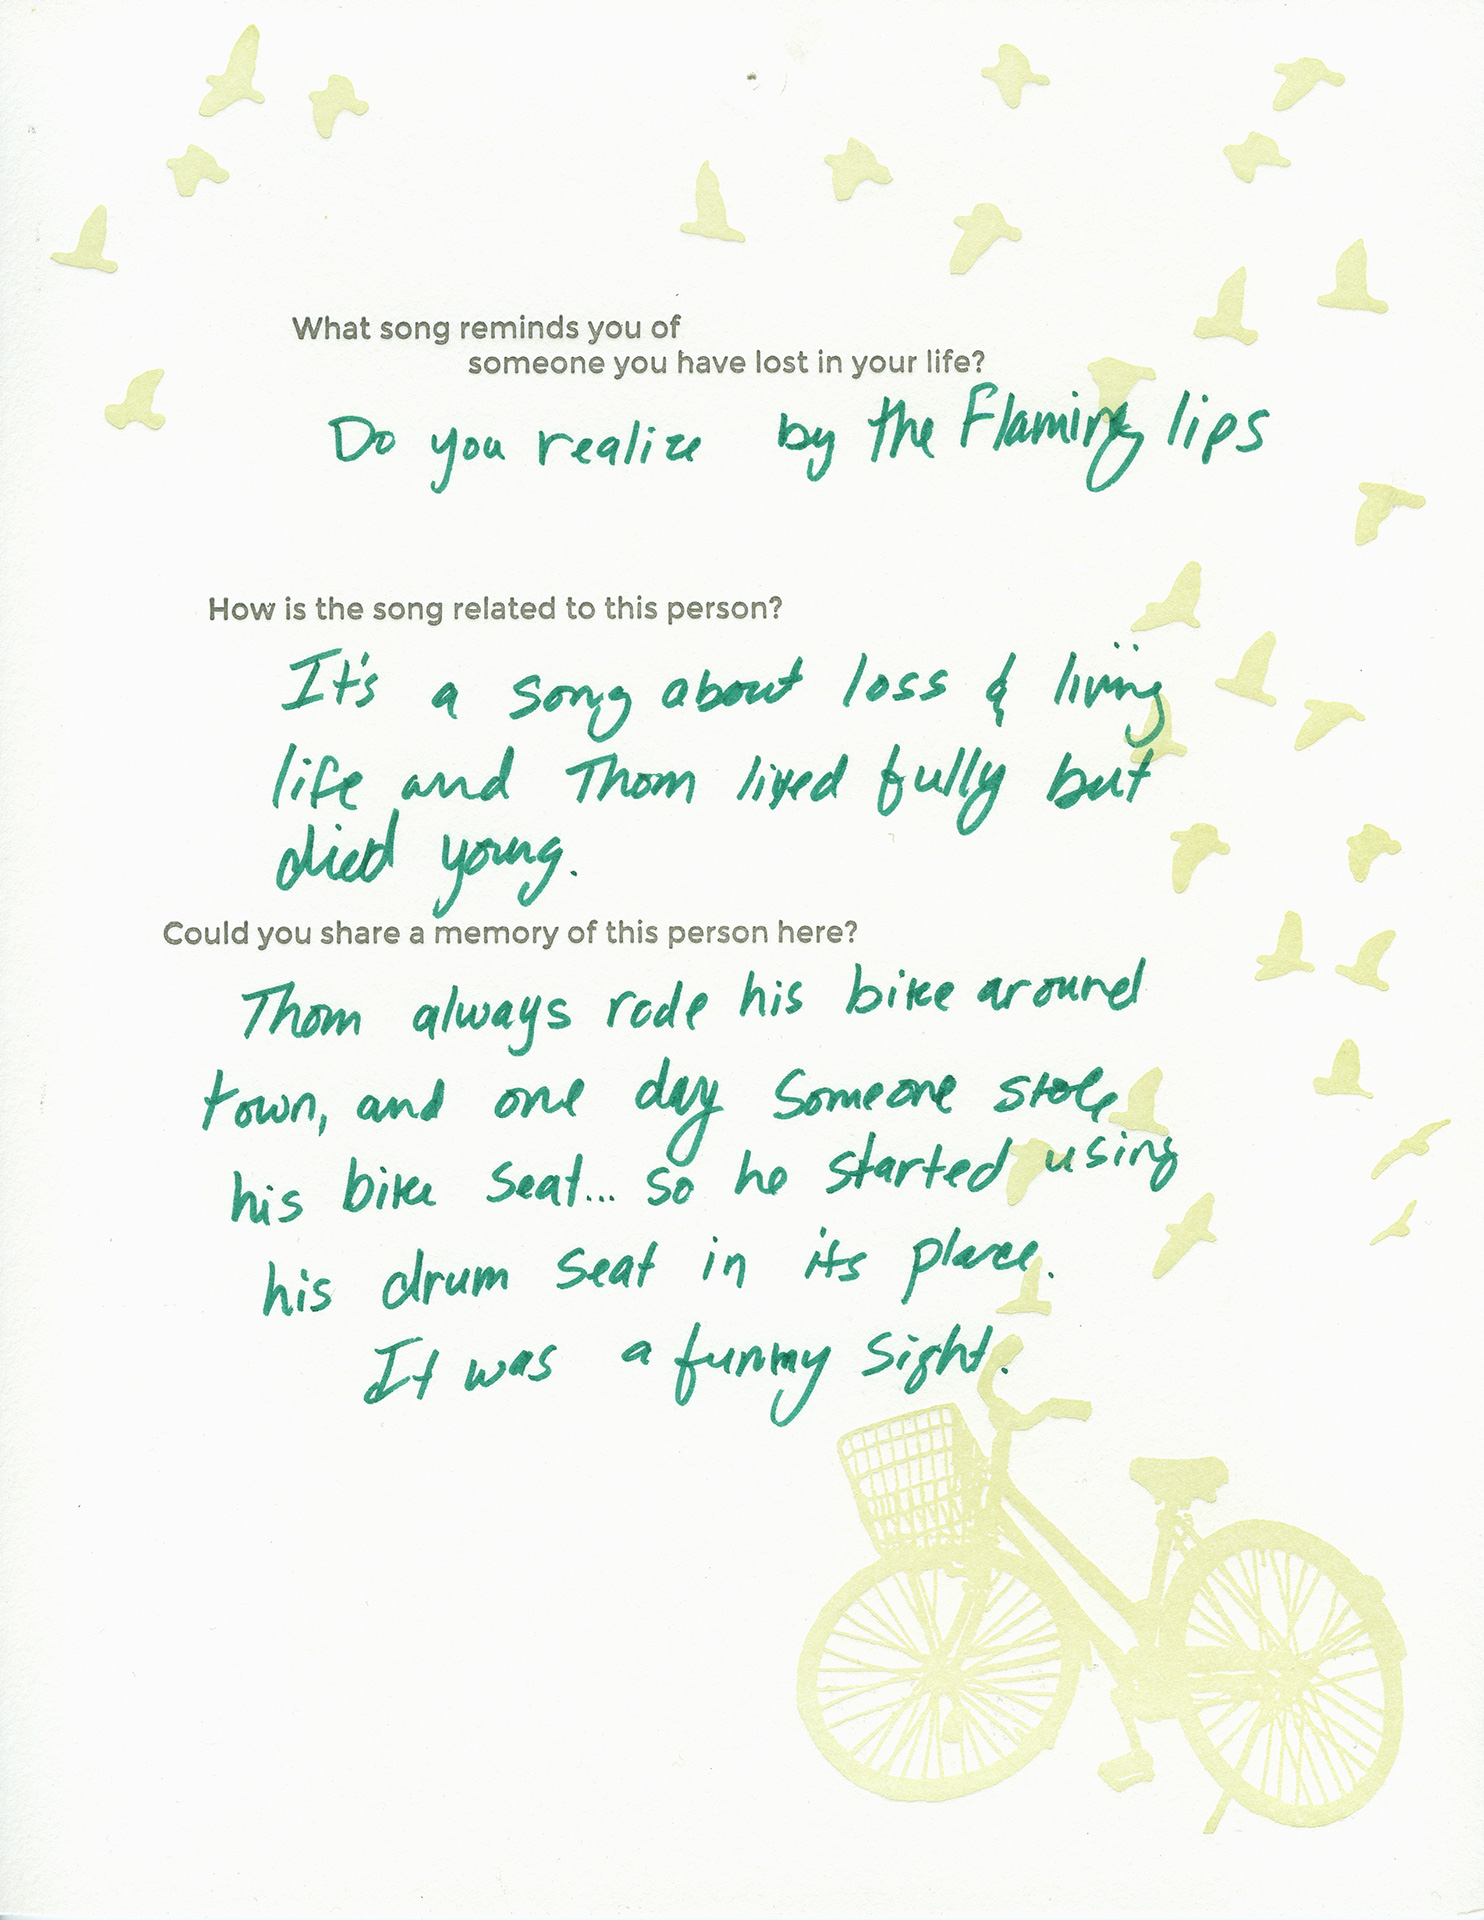 What song reminds you of
someone you have lost in your life?
Do you realize by the Flaming lips
How is the song related to this person?
It's a song about loss & living
life and Thom lived fully but
died young.
Could you share a memory of this person here?
Thom always rode his bike around
town, and one day someone stole
his bike seat... so he started using
his drum seat in its place.
It was a funny sight.